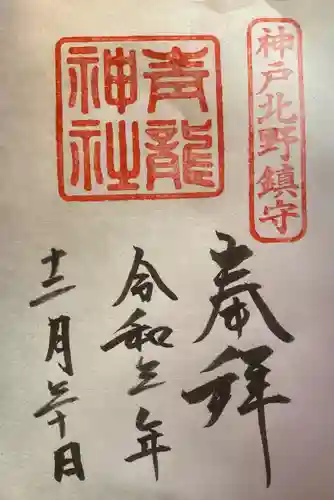 神戸北野鎮守
奉拝
青龍神社
令和三年
十二月三十日